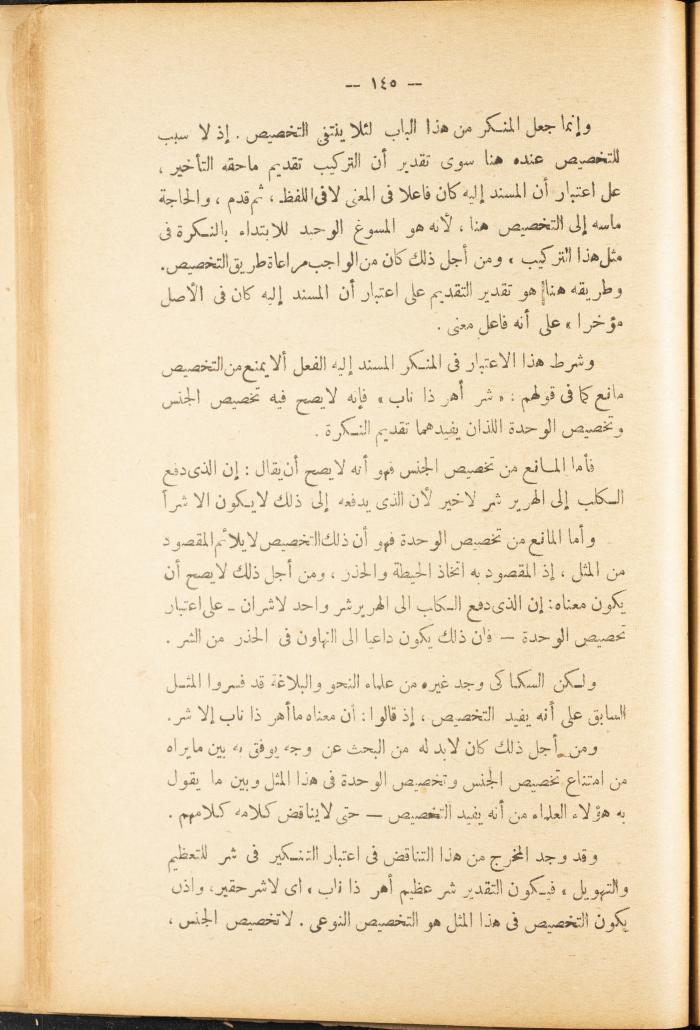 — ١٤٥ —
وإنما جعل المنكر من هذا الباب لئلا ينتفى التخصيص . إذ لا سبب
للتخصيص عنده هنا سوى تقدير أن التركيب تقديم ماحقه التأخير ،
على اعتبار أن المسند إليه كان فاعلا فى المعنى لافى اللفظ ، ثم قدم ، والحاجة
ماسه إلى التخصيص هنا ، لأنه هو المسوغ الوحيد للابتداء بالنكرة فى
مثل هذا التركيب ، ومن أجل ذلك كان من الواجب مراعاة طريق التخصيص.
وطريقه هنا هو تقدير التقديم على اعتبار أن المسند إليه كان فى الأصل
مؤخرا ، على أنه فاعل معنى .
وشرط هذا الاعتبار فى المنكر المسند إليه الفعل ألا يمنع من التخصيص
مانع كما فى قولهم : « شر أهر ذا ناب » فإنه لايصح فيه تخصيص الجنس
وتخصيص الوحدة اللذان يفيدهما تقديم النكرة .
فأما المانع من تخصيص الجنس فهو أنه لايصح أن يقال : إن الذى دفع
الكلب إلى الهرير شر لاخير لأن الذى يدفعه إلى ذلك لايكون الا شرآ
وأما المانع من تخصيص الوحدة فهو أن ذلك التخصيص لايلائم المقصود
من المثل ، إذ المقصود به اتخاذ الحيطة والحذر ، ومن أجل ذلك لايصح أن
يكون معناه: إن الذى دفع الكلب الى الهرير شر واحد لاشران ــ على اعتبار
تخصيص الوحدة — فان ذلك يكون داعيا الى التهاون فى الحذر من الشر .
ولكن السكاكى وجد غيره من علماء النحو والبلاغة قد فسروا المثل
السابق على أنه يفيد التخصيص ، إذ قالوا : أن معناه ما أهر ذا ناب إلا شر.
ومن أجل ذلك كان لابد له من البحث عن وجه يوفق به بين مايراه
من امتناع تخصيص الجنس وتخصيص الوحدة فى هذا المثل وبين ما يقول
به هؤلاء العلماء من أنه يفيد التخصيص — حتى لايناقض كلامه كلامهم .
وقد وجد المخرج من هذا التناقض فى اعتبار التنكير فى شر للتعظيم
والتهويل ، فيكون التقدير شر عظيم أهر ذا ناب ، اى لاشر حقير، واذن
يكون التخصيص فى هذا المثل هو التخصيص النوعى . لاتخصيص الجنس ،